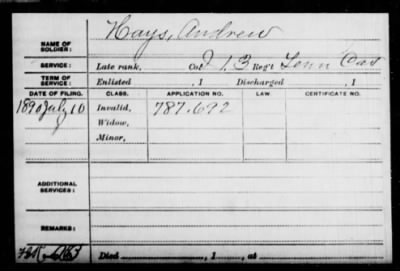 Hays, Andrew
NAME OF SOLDIER:
SERVICE: Late rank, Co. 13 Reg't Tenn Cav
TERM OF SERVICE: Enlisted , 1 Discharged , 1
DATE OF FILING. CLASS. APPLICATION NO. LAW. CERTIFICATE NO.
1890 July 10 Invalid, 787.692
Widow,
Minor,
ADDITIONAL SERVICES:
REMARKS:
Died , 1 , at